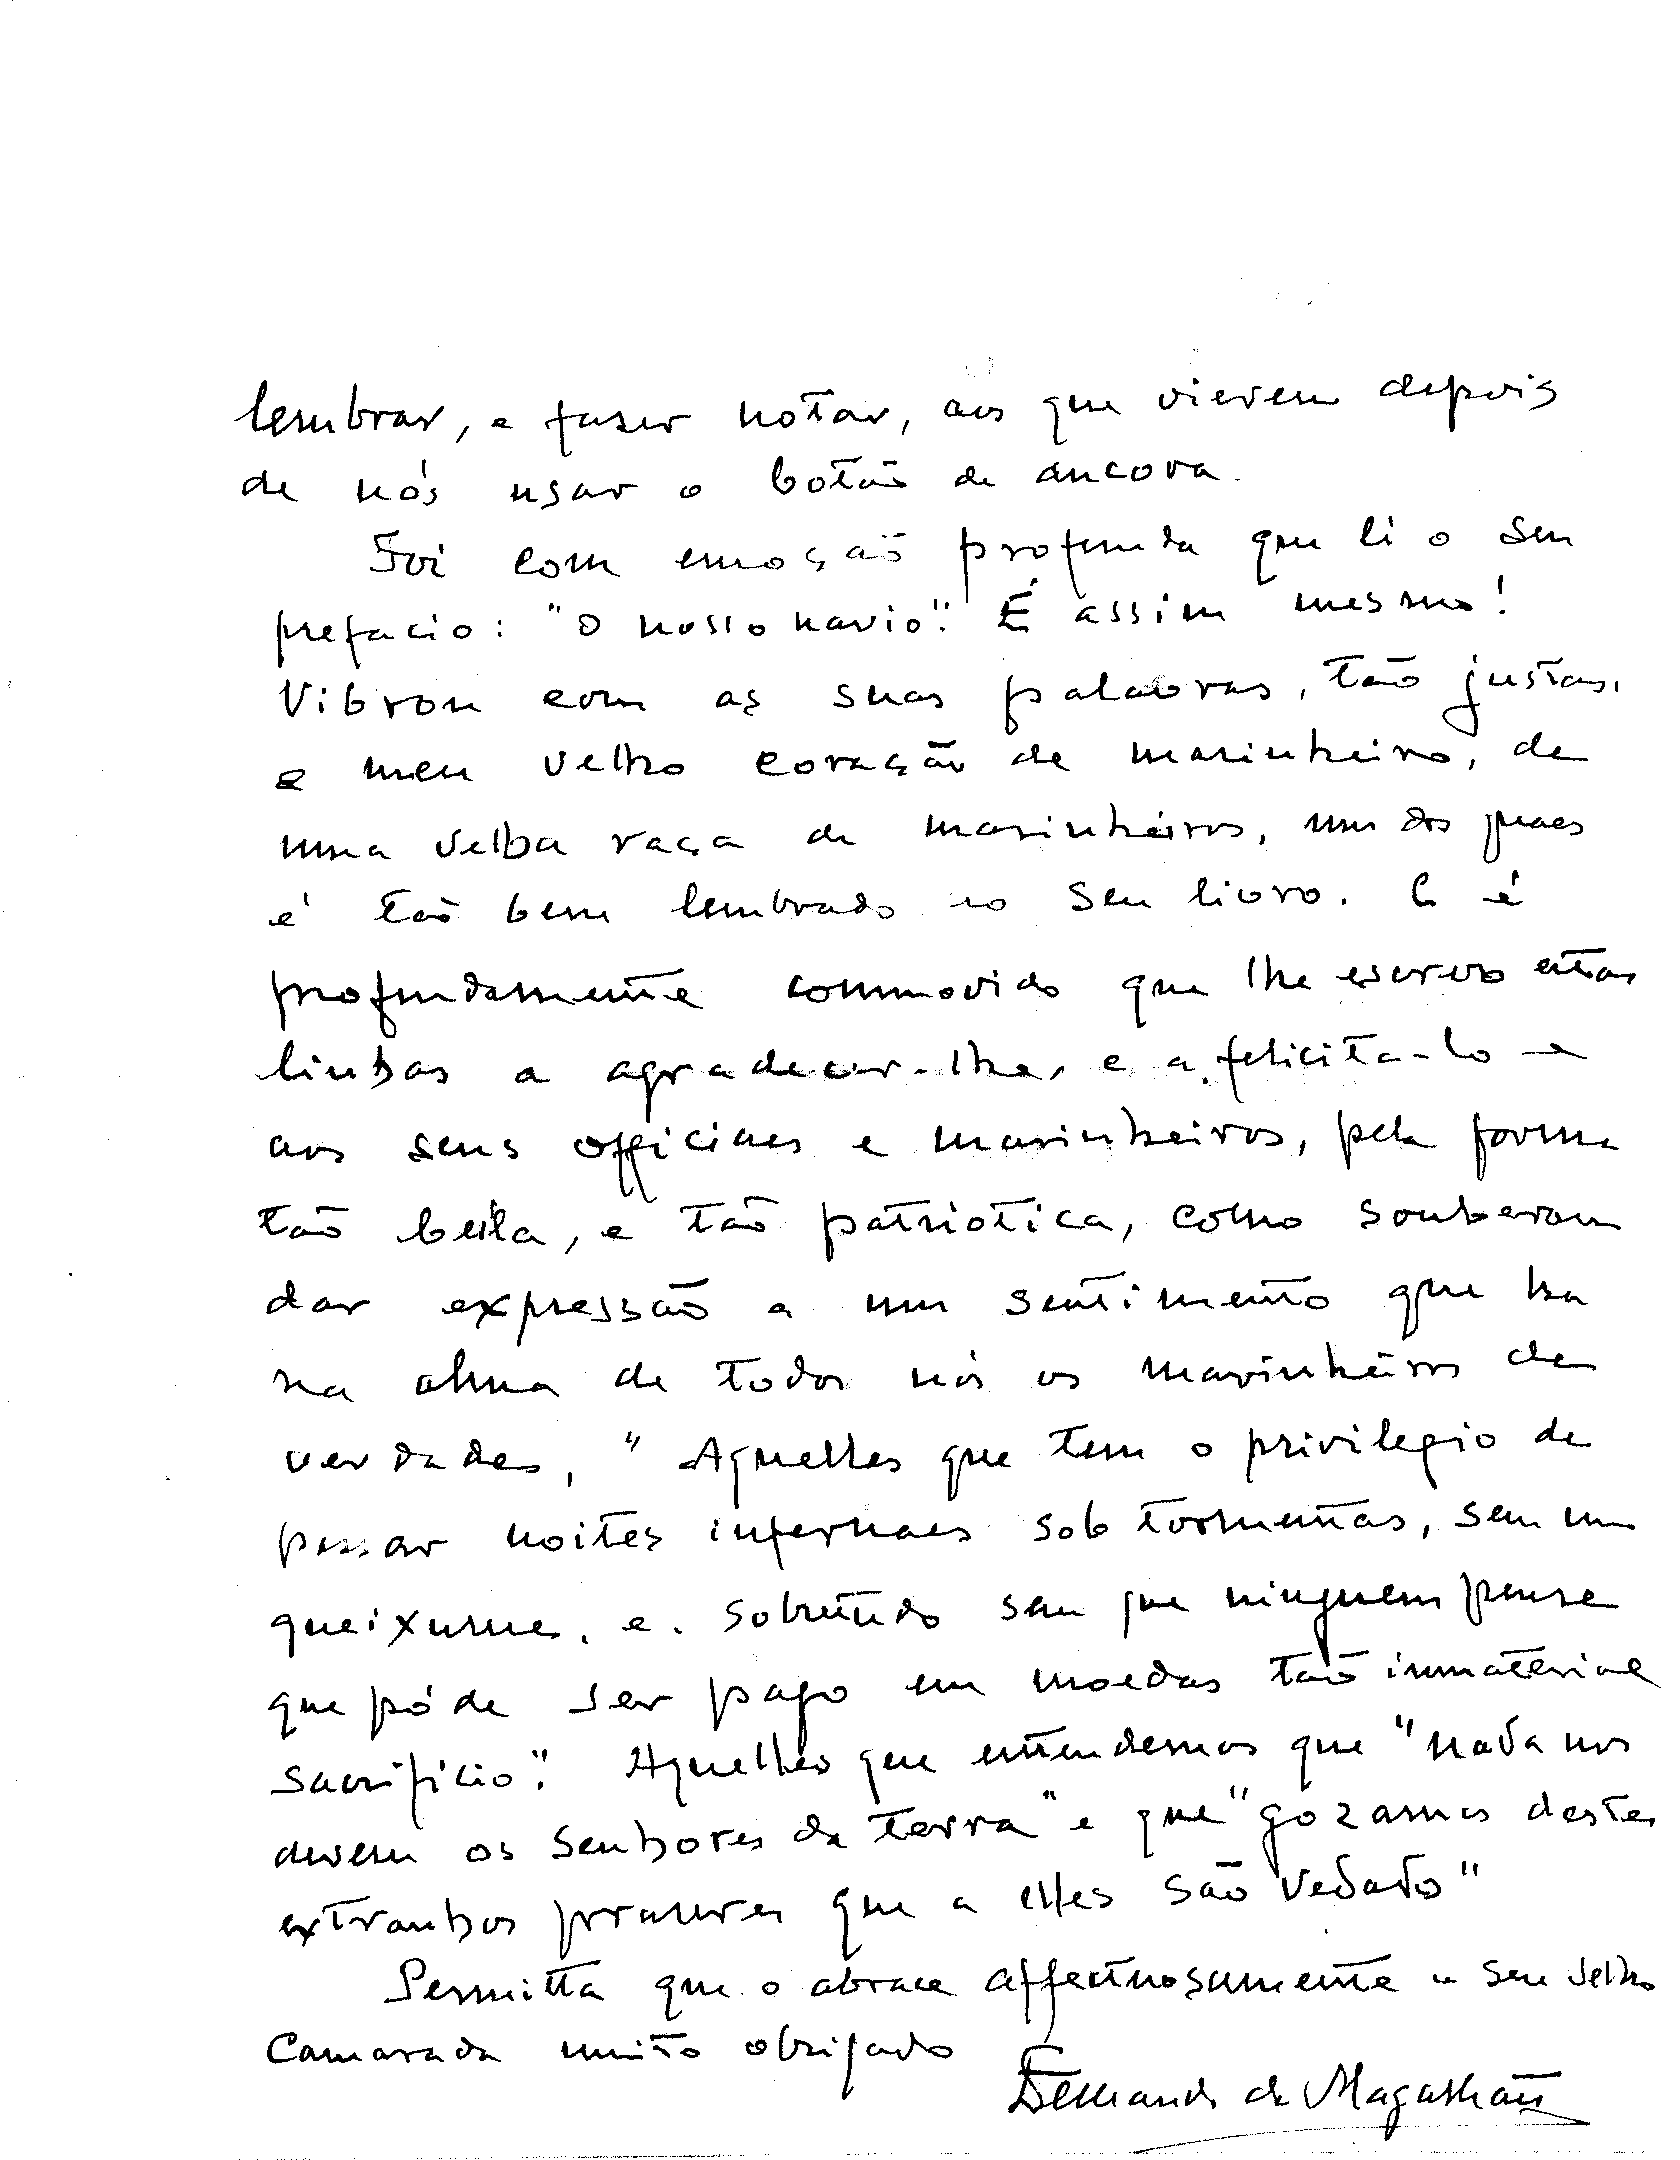 lembrar, e fazer notar, aos que vierem depois
de nós usar o botão de ancora.
Foi com emoção profunda que li o seu
prefacio: "O nosso navio". É assim mesmo!
Vibrou com as suas palavras, tão justas,
o meu velho coração de marinheiro, de
uma velha raça de marinheiros, um dos quaes
é tão bem lembrado no seu livro. E é
profundamente commovido que lhe escrevo estas
linhas a agradecer-lhe, e a felicita-lo e
aos seus officiaes e marinheiros, pela forma
tão bella, e tão patriotica, como souberam
dar expressão a um sentimento que ha
na alma de todos nós os marinheiros de
verdade, "Aquelles que tem o privilegio de
passar noites infernaes sob tormentas, sem um
queixume, e. sobretudo sem que ninguem pense
que póde ser pago em moedas tão immaterial
sacrificio". Aquelles que entendemos que "nada nos
devem os senhores da terra" e que "gozamos destes
extranhos prazeres que a elles são vedado"
Permitta que o abrace affectuosamente o seu velho
camarada muito obrigado
de Magalhães